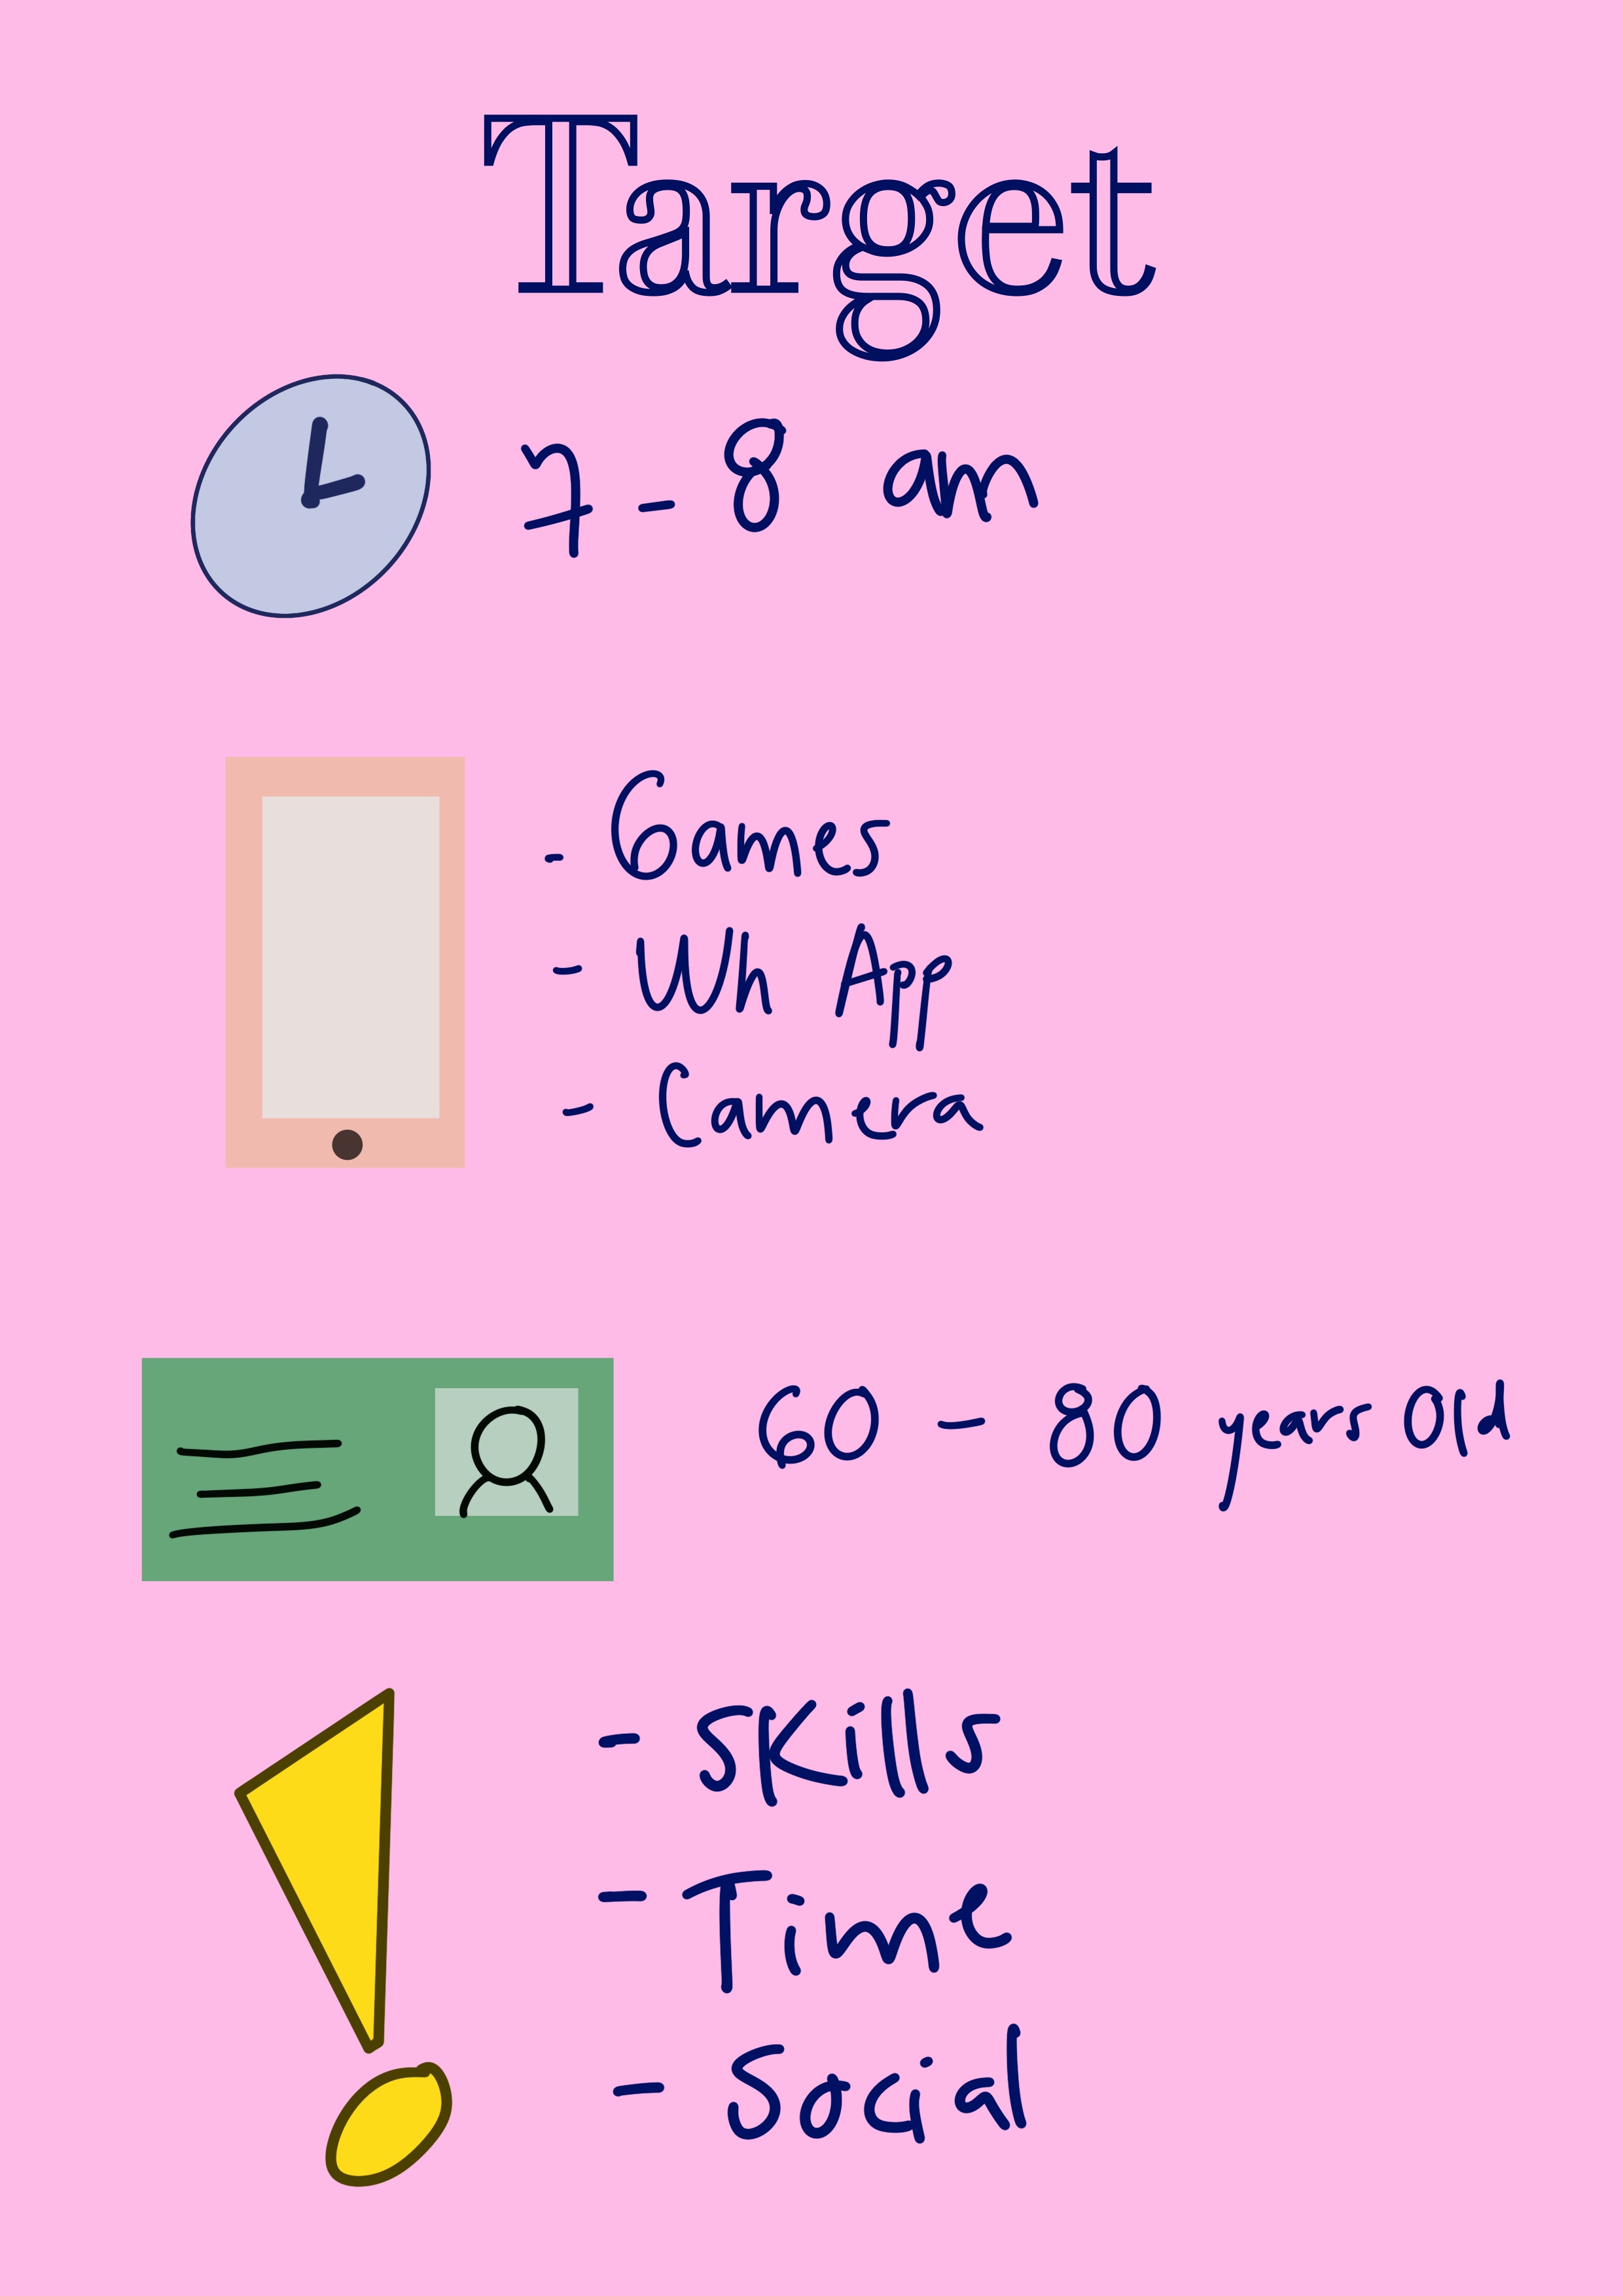 Target
7 - 8 am
- Games
- Wh App
- Camera
60 - 80 years Old
- Skills
- Time
- Social